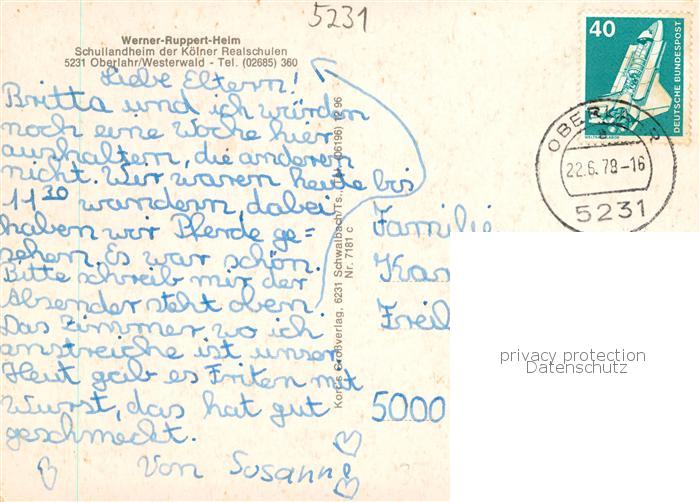 5231
Werner-Ruppert-Heim
Schullandheim der Kölner Realschulen
5231 Oberlahr/Westerwald - Tel. (02685) 360
Liebe Eltern!
Britta und ich würden
noch eine Woche hier
aushaltern, die anderen
nicht. Wir waren heute bis
11 30 wandern, dabei
haben wir Pferde ge=
sehen. Es war schön.
Bitte schreib mir der
Absender steht oben
Das Zimmer wo ich
anstreiche ist unser
Heut gab es Friten mit
Wurst, das hat gut
geschmeckt.
Von Susanne
Nr. 7181 c
40
DEUTSCHE BUNDESPOST
22.6.78-16
5231
Familie
Kar
Freil
5000
privacy protection
Datenschutz